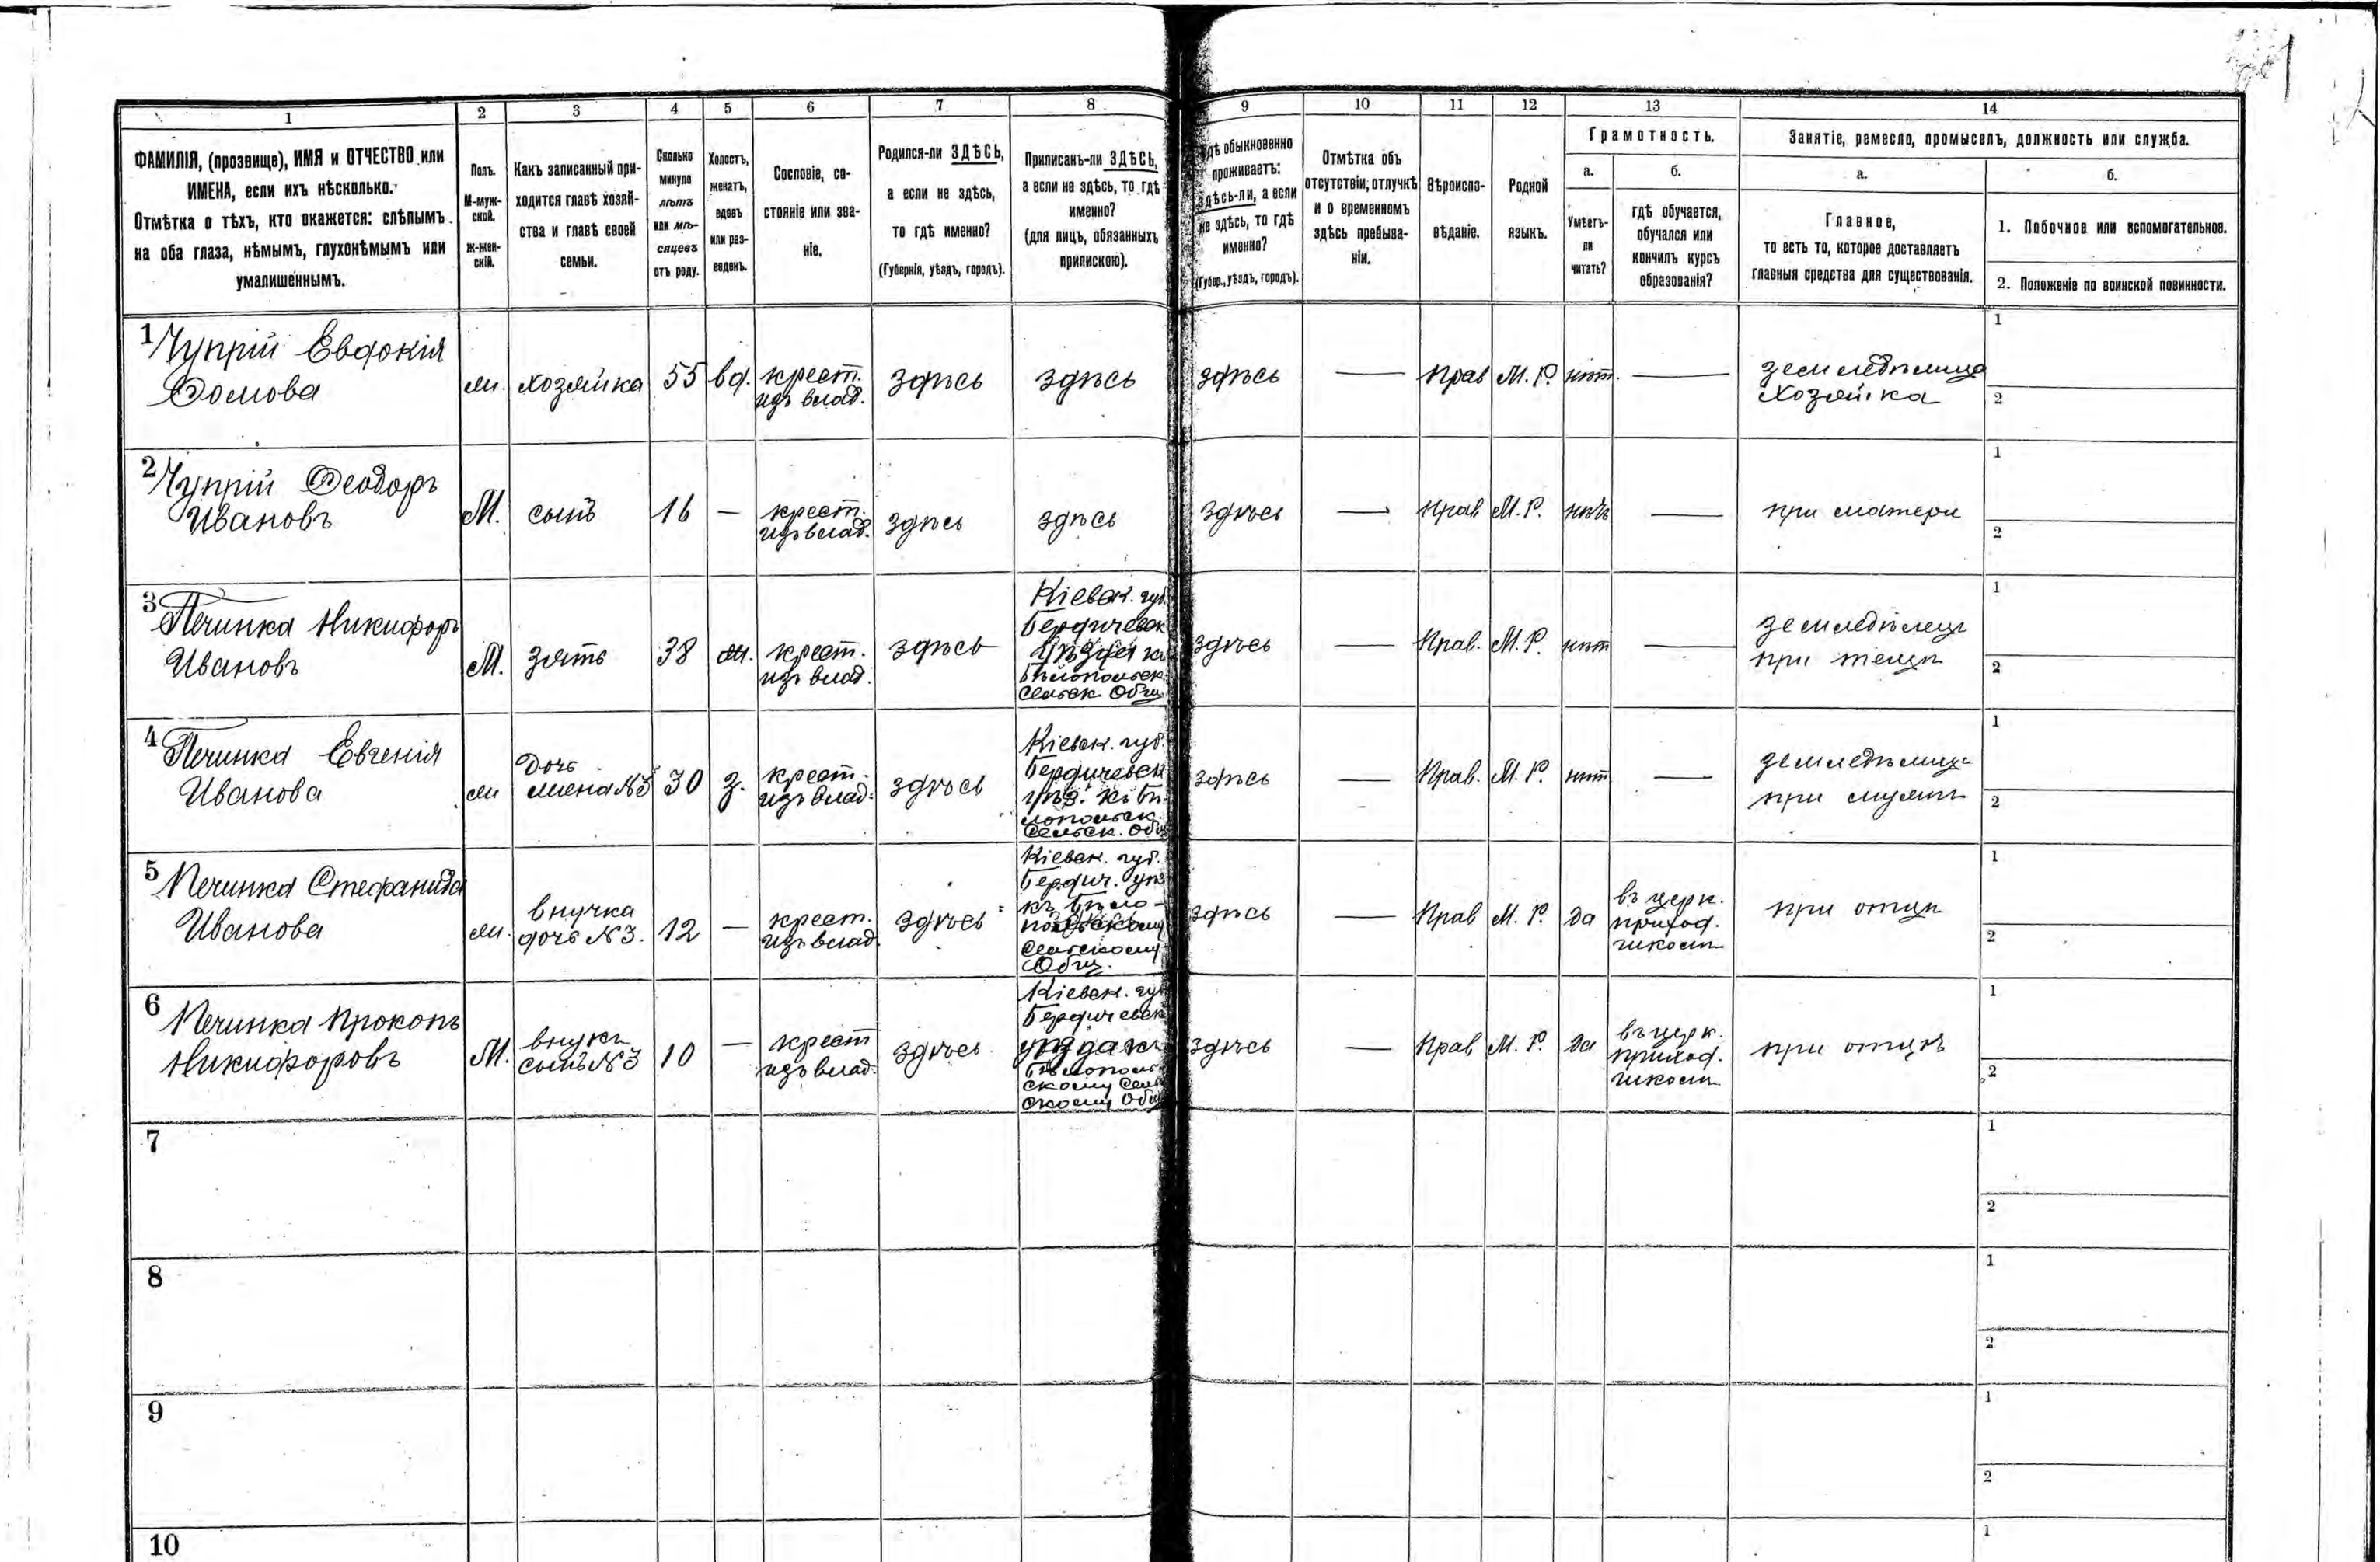 1 2 3 4 5 6 7 8 9 10 11 12 13 14
ФАМИЛІЯ, (прозвище), ИМЯ и ОТЧЕСТВО или
ИМЕНА, если ихъ нѣсколько.
Отмѣтка о тѣхъ, кто окажется: слѣпымъ
на оба глаза, нѣмымъ, глухонѣмымъ или
умалишеннымъ.
Полъ.
М-муж-
ской.
Ж-жен-
скій.
Какъ записанный при-
ходится главѣ хозяй-
ства и главѣ своей
семьи.
Сколько
минуло
лѣтъ
или мѣ-
сяцевъ
отъ роду.
Холостъ,
женатъ,
вдовъ
или раз-
веденъ.
Сословіе, со-
стояніе или зва-
ніе.
Родился-ли ЗДѢСЬ,
а если не здѣсь,
то гдѣ именно?
(Губернія, уѣздъ, городъ).
Приписанъ-ли ЗДѢСЬ,
а если не здѣсь, то гдѣ
именно?
(для лицъ, обязанныхъ
припискою).
Гдѣ обыкновенно
проживаетъ:
здѣсь-ли, а если
не здѣсь, то гдѣ
именно?
(Губер., уѣздъ, городъ).
Отмѣтка объ
отсутствіи, отлучкѣ
и о временномъ
здѣсь пребыва-
ніи.
Вѣроиспо-
вѣданіе.
Родной
языкъ.
Грамотность.
а.
Умѣетъ-
ли
читать?
б.
гдѣ обучается,
обучался или
кончилъ курсъ
образованія?
Занятіе, ремесло, промыселъ, должность или служба.
а.
Главное,
то есть то, которое доставляетъ
главныя средства для существованія.
б.
1. Побочное или вспомогательное.
2. Положеніе по воинской повинности.
1 Чупрій Евдокія
Фомова
ж. хозяйка 55 вд. крест.
изъ влад.
здѣсь здѣсь здѣсь — Прав М. Р. нѣт. — земледѣлица
хозяйка
1
2
2 Чупрій Феодоръ
Ивановъ
М. сынъ 16 — крест.
изъ влад.
здѣсь здѣсь здѣсь — Прав М. Р. нѣтъ — при матери
1
2
3 Печинка Никифоръ
Ивановъ
М. зять 38 ж. крест.
изъ влад.
здѣсь
Кіевск. губ.
Бердичевск
уѣзда къ
Бѣлопольск.
Сельск. Общ
здѣсь — Прав. М. Р. нѣт — земледѣлецъ
при тещѣ
1
2
4 Печинка Евгенія
Иванова
ж Дочь
жена №3 30 з. крест.
изъ влад.
здѣсь
Кіевск. губ.
Бердичевск
уѣз. къ Бѣ-
лопольск.
Сельск. Общ
здѣсь — Прав. М. Р. нѣт — земледѣлица
при мужѣ
1
2
5 Печинка Стефанида
Иванова
ж. внучка
дочь №3. 12 — крест.
изъ влад
здѣсь
Кіевск. губ.
Бердич. уѣз
къ Бѣло-
польскому
Сельскому
Общ.
здѣсь — Прав М. Р. да въ церк.
приход.
школѣ
при отцѣ
1
2
6 Печинка Прокопъ
Никифоровъ
М. внукъ
сынъ №3 10 — крест
изъ влад.
здѣсь
Кіевск. губ
Бердичевск
уѣзда къ
Бѣлополь-
скому Сель
скому Общ
здѣсь — Прав М. Р. да въ церк.
приход.
школѣ
при отцѣ
1
2
7
1
2
8
1
2
9
1
2
10
1